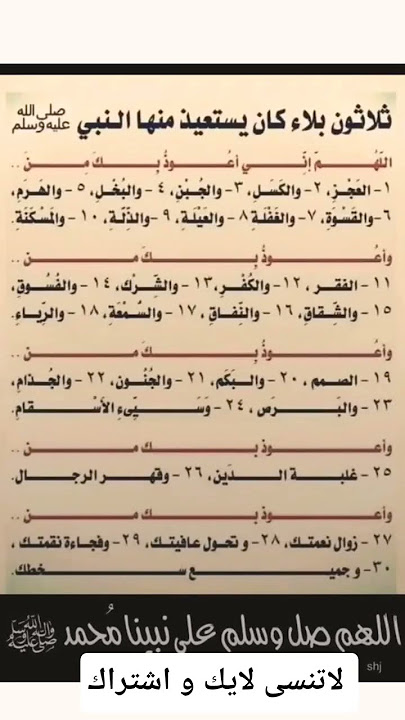 ثلاثون بلاء كان يستعيذ منها النبي صلى الله عليه وسلم
اللَّهُمَّ إنِّي أعُوذُ بِكَ مِنَ ..
١- العَجْزِ، ٢- والكَسَلِ، ٣- والجُبْنِ، ٤- والبُخْلِ، ٥- والهَرمِ،
٦- والقَسْوَةِ، ٧- والغَفْلَةِ ٨- والعَيْلَةِ، ٩- والذِّلَّةِ، ١٠- والمَسْكَنَةِ.
وأعُوذُ بِكَ مِنَ ..
١١- الفقر ، ١٢- والكُفْرِ، ١٣- والشِّرْكِ، ١٤- والفُسُوقِ،
١٥- والشِّقاقِ، ١٦- والنِّفاقِ ، ١٧- والسُّمْعَةِ، ١٨- والرِّياءِ.
وأعُوذُ بِكَ مِنَ ..
١٩- الصمم ، ٢٠- والبَكَمِ ، ٢١- والجُنُونِ، ٢٢- والجُذامِ،
٢٣- والبَرَصِ ، ٢٤- وَسَيِّيءِ الأسْقامِ.
وأعوذ بِكَ مِنَ ..
٢٥- غلبة الدَين، ٢٦- وقهر الرجال.
وأعوذ بِكَ مِنَ ..
٢٧- زوال نعمتك، ٢٨- و تحول عافيتك، ٢٩- وفجاءة نقمتك ،
٣٠- و جميع سخطك.
اللهم صل وسلم على نبينا مُحمد صلى الله عليه وآله وسلم
shj
لاتنسى لايك و اشتراك